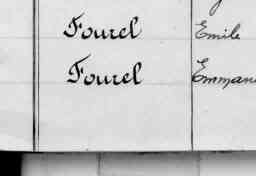 Fourel Emile
Fourel Emman